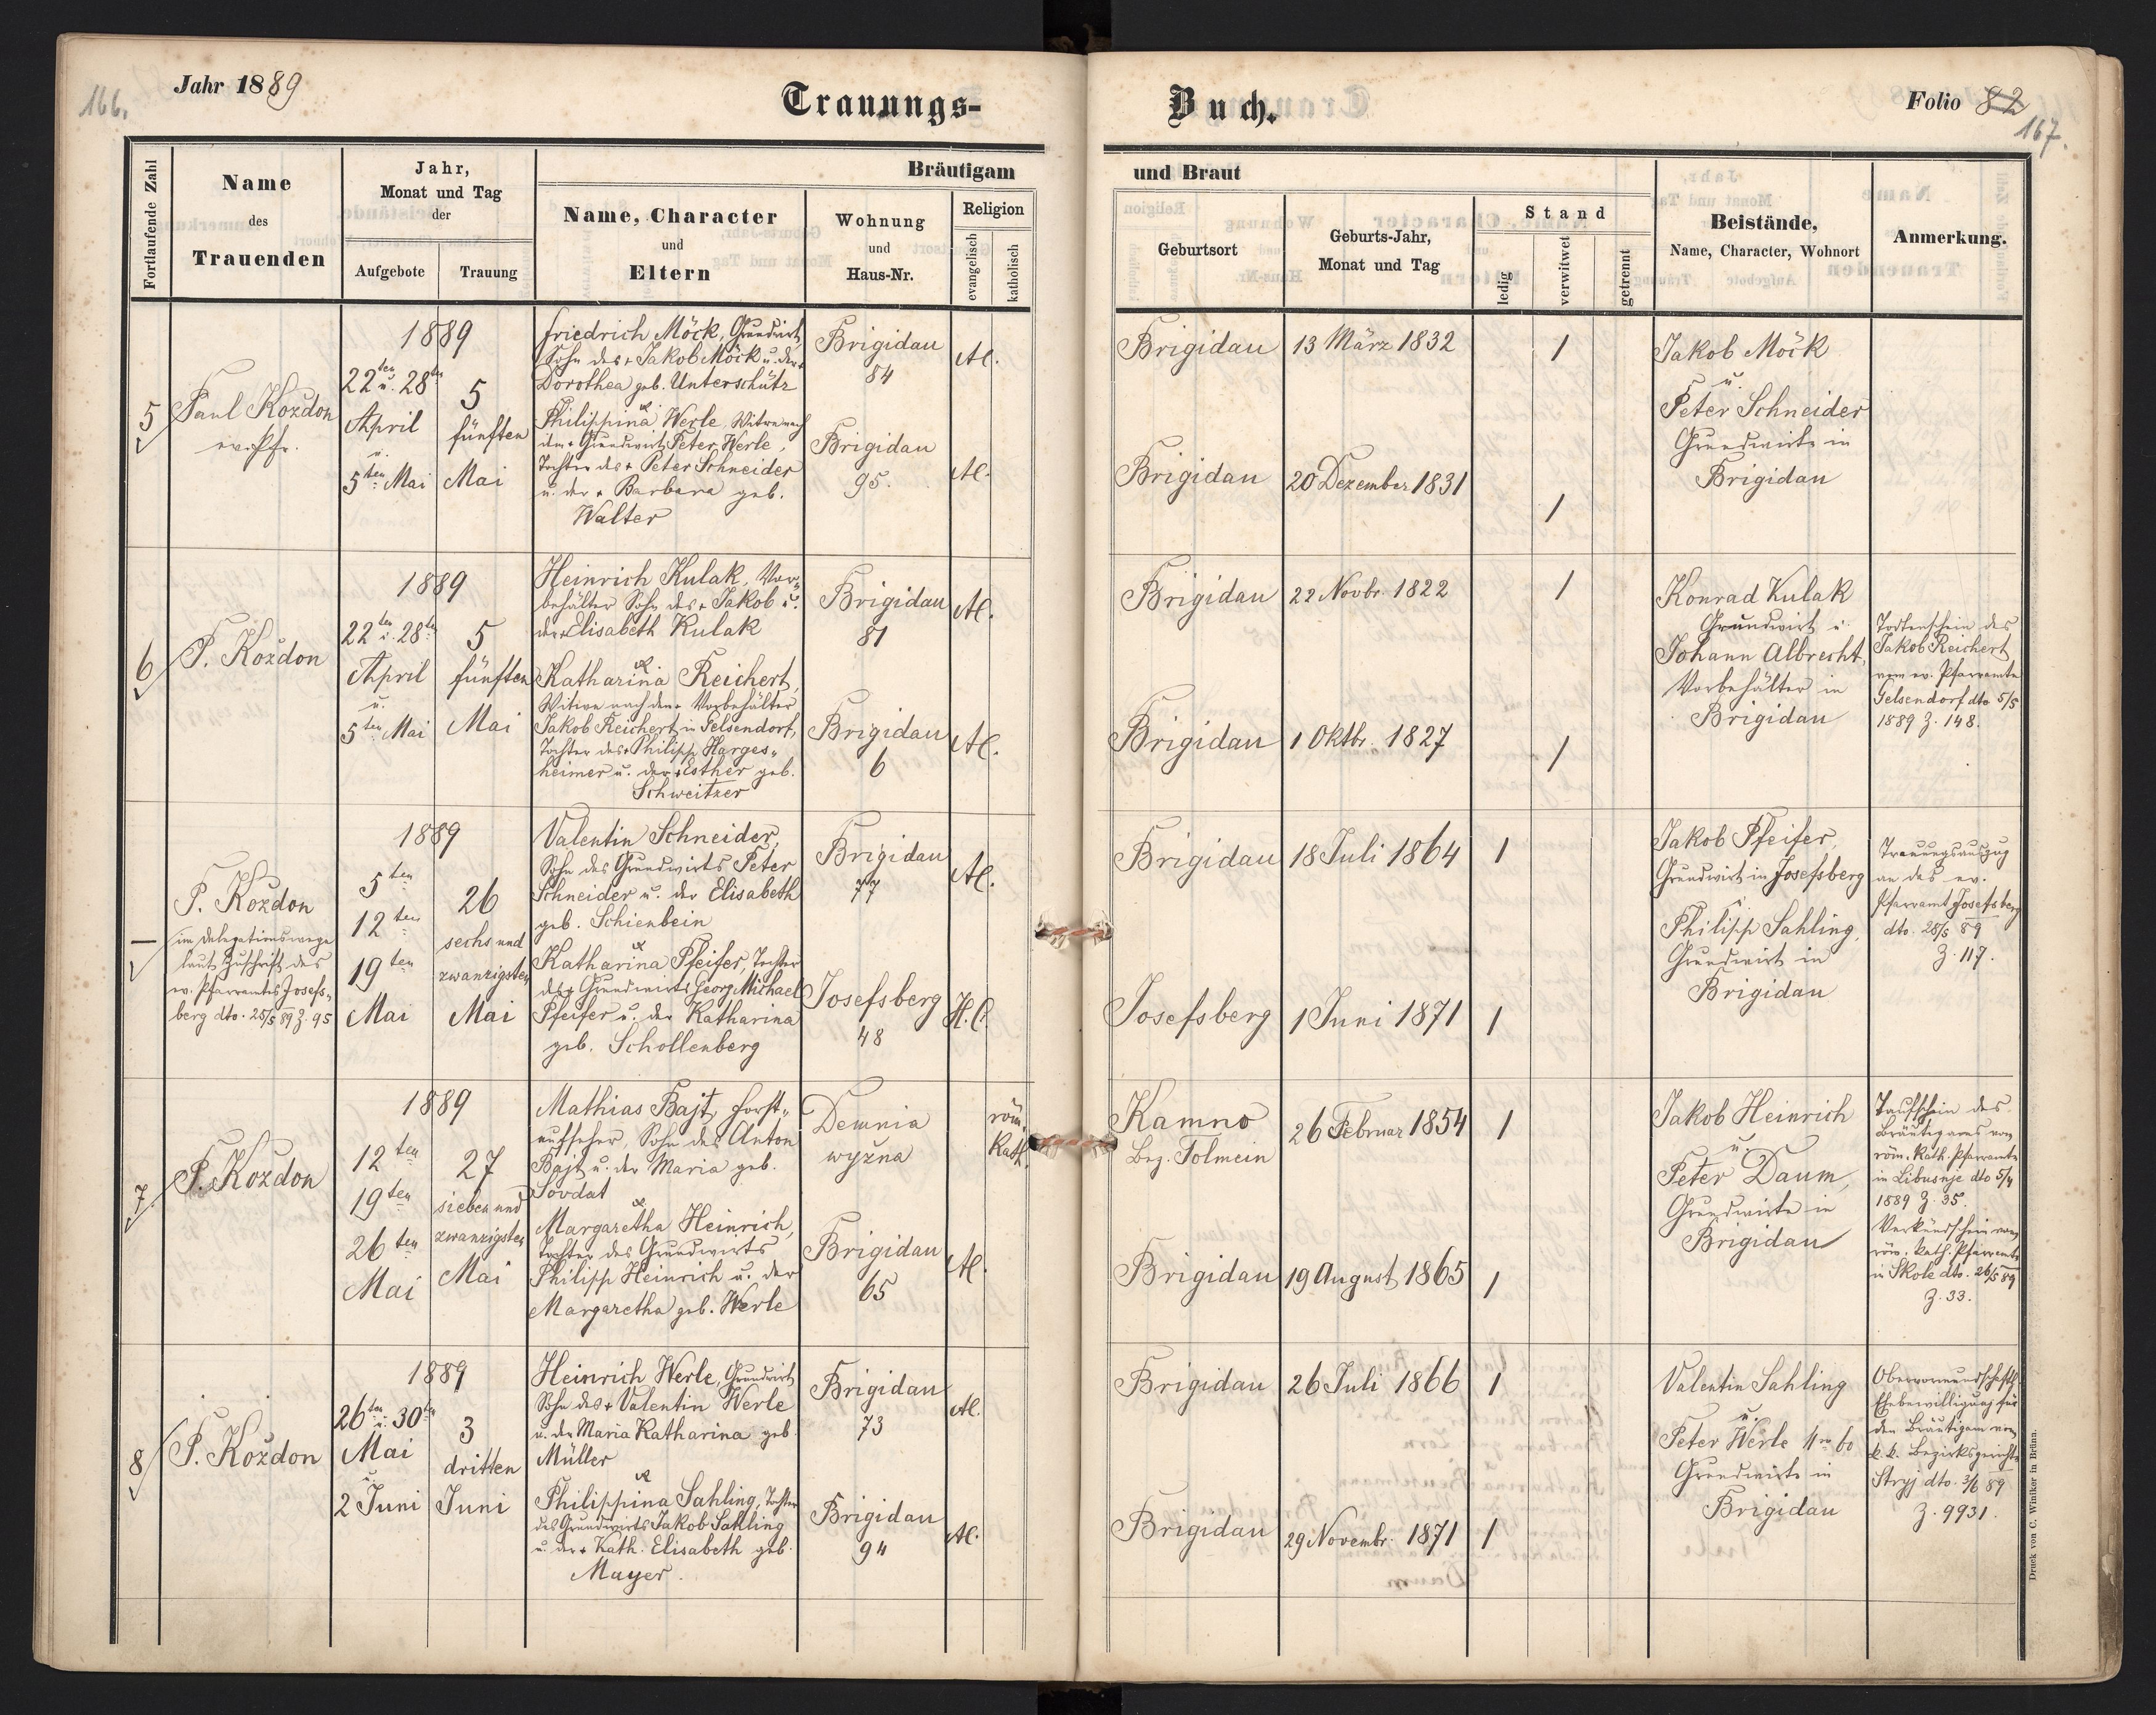 166.
Jahr 1889
Trauungs-
Buch.
Folio 82
167.
Fortlaufende Zahl
Name
des
Trauenden
Jahr,
Monat und Tag
der
Aufgebote
Trauung
Bräutigam
und Braut
Name, Character
und
Eltern
Wohnung
und
Haus-Nr.
Religion
evangelisch
katholisch
Geburtsort
Geburts-Jahr,
Monat und Tag
Stand
ledig
verwitwet
getrennt
Beistände,
Name, Character, Wohnort
Anmerkung.
5
Paul Kozdon
ev. Pfr.
1889
22ten u. 28ten
April
u.
5ten Mai
5
fünften
Mai
Friedrich Möck, Grundwirt,
Sohn des + Jakob Möck u. der +
Dorothea geb. Unterschütz
u.
Philippina Werle, Witwe nach
dem + Grundwirt Peter Werle,
Tochter des + Peter Schneider
u. der + Barbara geb.
Walter
Brigidau
84
Brigidau
95.
A.
A.
Brigidau
13 März 1832
1
Brigidau
20 Dezember 1831
1
Jakob Möck
u.
Peter Schneider
Grundwirte in
Brigidau
6
P. Kozdon
1889
22ten u. 28ten
April
u.
5ten Mai
5
fünften
Mai
Heinrich Kulak, Vor-
behälter Sohn des + Jakob u.
der + Elisabeth Kulak
u.
Katharina Reichert,
Witwe nach dem + Vorbehälter
Jakob Reichert in Gelsendorf,
Tochter des + Philipp Harges-
heimer u. der + Esther geb.
Schweitzer
Brigidau
81
Brigidau
6
A.
A.
Brigidau
22 Novbr. 1822
1
Brigidau
1 Oktbr. 1827
1
Konrad Kulak
Grundwirt u.
Johann Albrecht,
Vorbehälter in
Brigidau
Todtenschein des
Jakob Reichert
vom ev. Pfarramte
Gelsendorf dto 5/5
1889 Z. 148.
–
P. Kozdon
im Delegationswege
laut Zuschrift des
ev. Pfarramtes Josefs-
berg dto. 25/5 89 Z. 95
1889
5ten
12ten
19ten
Mai
26
sechs und
zwanzigsten
Mai
Valentin Schneider,
Sohn des Grundwirts Peter
Schneider u. der Elisabeth
geb. Schienbein
u.
Katharina Pfeifer, Tochter
des + Grundwirts Georg Michael
Pfeifer u. der Katharina
geb. Schollenberg
Brigidau
77
Josefsberg
48
A.
H. C.
Brigidau
18 Juli 1864
1
Josefsberg
1 Juni 1871
1
Jakob Pfeifer,
Grundwirt in Josefsberg
u.
Philipp Sahling,
Grundwirt in
Brigidau
Trauungsauszug
an das ev.
Pfarramt Josefsberg
dto. 28/5 89
Z. 117.
7
P. Kozdon
1889
12ten
19ten
26ten
Mai
27
sieben und
zwanzigsten
Mai
Mathias Bajt, Forst-
aufseher, Sohn des Anton
Bajt u. der Maria geb.
Sovdat
u.
Margaretha Heinrich,
Tochter des Grundwirts
Philipp Heinrich u. der
Margaretha geb. Werle
Demnia
wyzna
Brigidau
65
röm.
Kath.
A.
Kamno
Bez. Tolmein
26 Februar 1854
1
Brigidau
19 August 1865
1
Jakob Heinrich
u.
Peter Daum,
Grundwirte in
Brigidau
Taufschein des
Bräutigams vom
röm. Kath. Pfarramte
in Libusnje dto 5/4
1889 Z. 35.
Verkündschein vom
röm. kath. Pfarramte
in Skole dto. 26/5 89
Z. 33.
8
P. Kozdon
1889
26ten u. 30ten
Mai
u.
2 Juni
3
dritten
Juni
Heinrich Werle, Grundwirt
Sohn des + Valentin Werle
u. der Maria Katharina geb.
Müller
u.
Philippina Sahling, Tochter
des Grundwirts Jakob Sahling
u. der + Kath. Elisabeth geb.
Mayer.
Brigidau
73
Brigidau
94
A.
A.
Brigidau
26 Juli 1866
1
Brigidau
29 Novembr. 1871
1
Valentin Sahling
u.
Peter Werle Nro 60
Grundwirte in
Brigidau
Obervormundschaftl.
Ehebewilligung für
den Bräutigam vom
k. k. Bezirksgerichte
Stryj dto. 3/6 89
Z. 9931.
Druck von C. Winiker in Brünn.